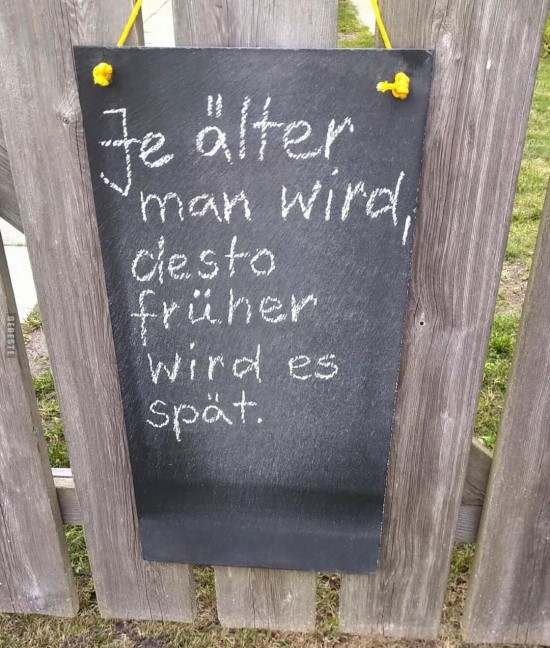 Je älter
man wird,
desto
früher
wird es
spät.
DEBESTE